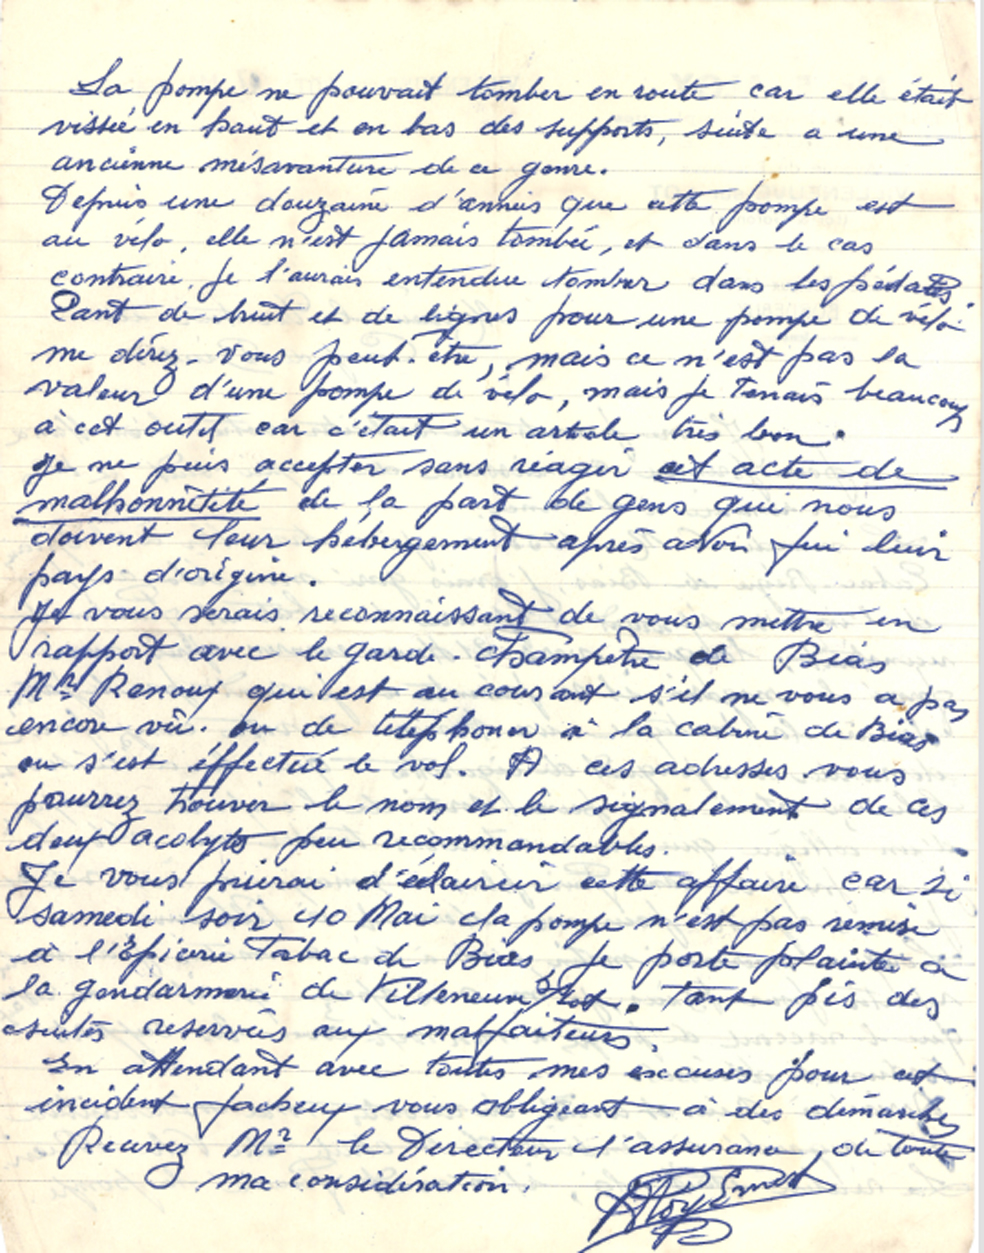 La pompe ne pouvait tomber en route car elle était
vissée en haut et en bas des supports, suite a une
ancienne mésavanture de ce genre.
Depuis une douzaine d'années que cette pompe est
au vélo, elle n'est jamais tombée, et dans le cas
contraire, je l'aurais entendue tomber dans les pédales.
Tant de bruit et de lignes pour une pompe de vélo
me direz-vous peut-être, mais ce n'est pas la
valeur d'une pompe de vélo, mais je tenais beaucoup
à cet outil car c'était un article très bon.
Je ne puis accepter sans réagir cet acte de
malhonnêteté de la part de gens qui nous
doivent leur hébergement après avoir fui leur
pays d'origine.
Je vous serais reconnaissant de vous mettre en
rapport avec le garde-champêtre de Bias
Mr Renoux qui est au courant s'il ne vous a pas
encore vu. ou de téléphoner à la cabine de Bias
ou s'est éffectué le vol. A ces adresses vous
pourrez trouver le nom et le signalement de ces
deux acolytes peu recommandables.
Je vous prierai d'éclaircir cette affaire car si
samedi soir 10 Mai la pompe n'est pas remise
à l'Épicerie Tabac de Bias, je porte plainte à
la gendarmerie de Villeneuve/Lot. tant pis des
suites reservées aux malfaiteurs.
En attendant avec toutes mes excuses pour cet
incident facheux vous obligeant à des démarches
Recevez Mr le Directeur l'assurance, de toute
ma considération.
Ernest